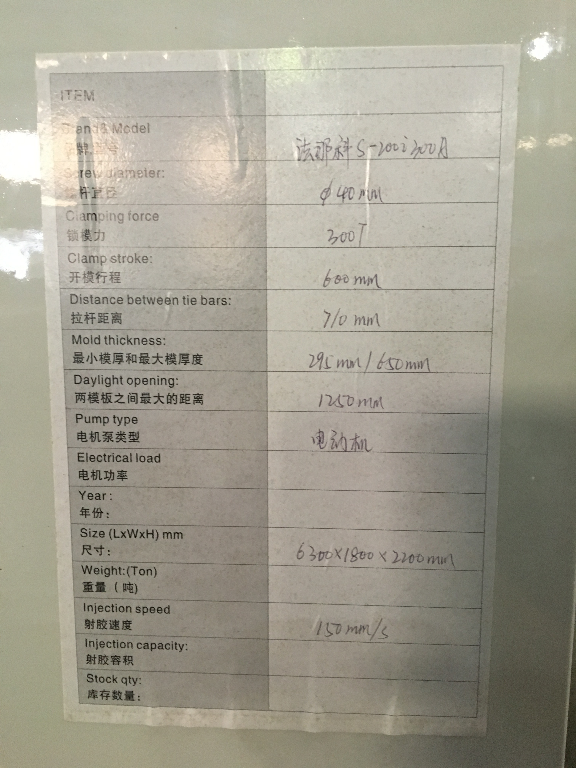 ITEM
Brand & Model
品牌型号
法那科 S-200i 300A
Screw diameter:
螺杆直径
φ40mm
Clamping force
锁模力
300T
Clamp stroke:
开模行程
600mm
Distance between tie bars:
拉杆距离
710 mm
Mold thickness:
最小模厚和最大模厚度
295mm/650mm
Daylight opening:
两模板之间最大的距离
1250mm
Pump type
电机泵类型
电动机
Electrical load
电机功率
Year :
年份:
Size (LxWxH) mm
尺寸:
6300×1800×2200mm
Weight:(Ton)
重量（吨)
Injection speed
射胶速度
150mm/s
Injection capacity:
射胶容积
Stock qty:
库存数量: